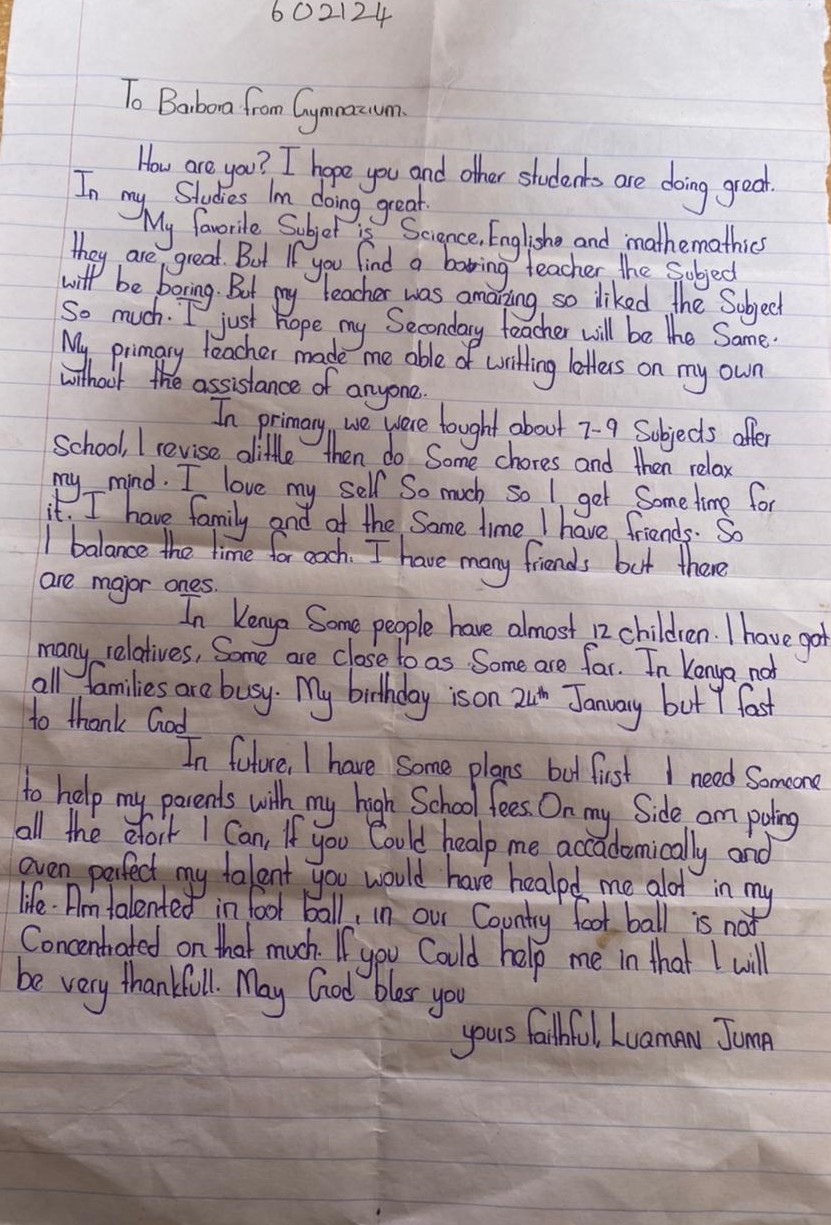 602124
To Barbora from Gymnazium.
How are you? I hope you and other students are doing great.
In my Studies Im doing great.
My favorite Subjet is Science, Englishe and mathemathics
they are great. But If you find a boring teacher the Subject
will be boring. But my teacher was amazing so iliked the Subject
So much. I just hope my Secondary teacher will be the Same.
My primary teacher made me able of writting letters on my own
without the assistance of anyone.
In primary, we were tought about 7-9 Subjects after
School, I revise alittle then do Some chores and then relax
my mind. I love my self So much so I get Some time for
it. I have family and at the Same time I have friends. So
I balance the time for each. I have many friends but there
are major ones.
In Kenya Some people have almost 12 children. I have got
many relatives, Some are close to as Some are far. In Kenya not
all families are busy. My birthday is on 24th January but I fast
to thank God
In future, I have Some plans but first I need Someone
to help my parents with my high School fees. On my Side am puting
all the efort I Can, If you Could healp me accadamically and
even perfect my talent you would have healpd me alot in my
life. Am talented in foot ball, in our Country foot ball is not
Concentrated on that much. If you Could help me in that I will
be very thankfull. May God bless you
yours faithful, LUQMAN JUMA